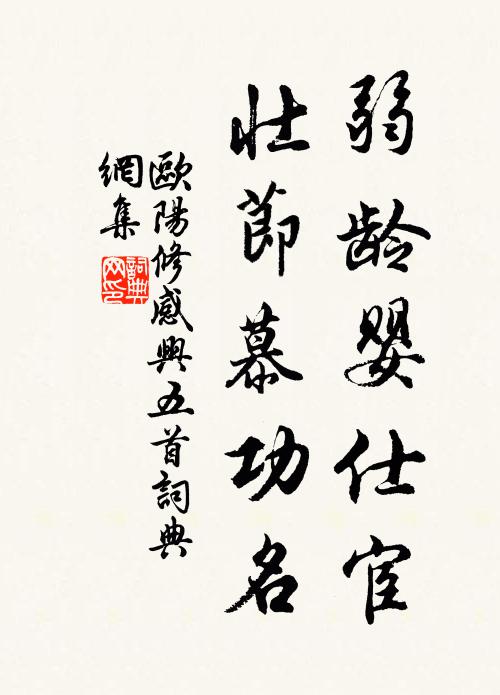 弱龄婴仕宦
壮節慕功名
歐陽修感興五首詞典
網集
詞典網印